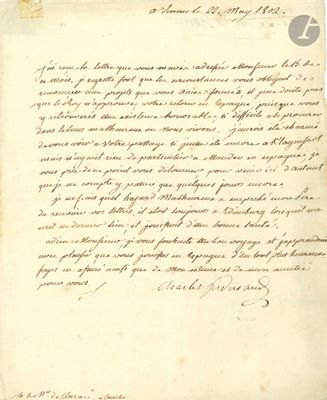 a Vienne le 22. May 1802.
j'ai reçu la lettre que vous m'avés adressée Monsieur le 13. de
ce Mois, je regrette fort que les circonstances vous obligent de
renoncer aux projets que vous aviés formés et ne doute pas
que le Roy n'approuve votre retour en Espagne puisque vous
y retrouverés une existence honorable, si difficile à se procurer
dans le tems malheureux ou nous vivons. j'aurois été charmé
de vous voir a votre passage si j'eusse été encore a Klagenfurt
mais n'ayant rien de particulier a Mander en espagne je
vous prie de ne point vous détourner pour venir ici d'autant
que je ne compte y passer que quelques jours encore.
je ne sais quel hazard Malheureux a empeché mon Pere
de recevoir vos lettres, il étoit toujours a Edimburg lorsqu'il m'a
écrit en dernier lieu et jouissoit d'une bonne santé.
adieu Monsieur je vous souhaite un bon voyage et j'apprendrai
avec plaisir que vous jouissés en Espagne d'un sort plus heureux
soyés en assuré ainsi que de Mon estime et de mon amitié
pour vous.
Charles Ferdinand
M. le Mis. de